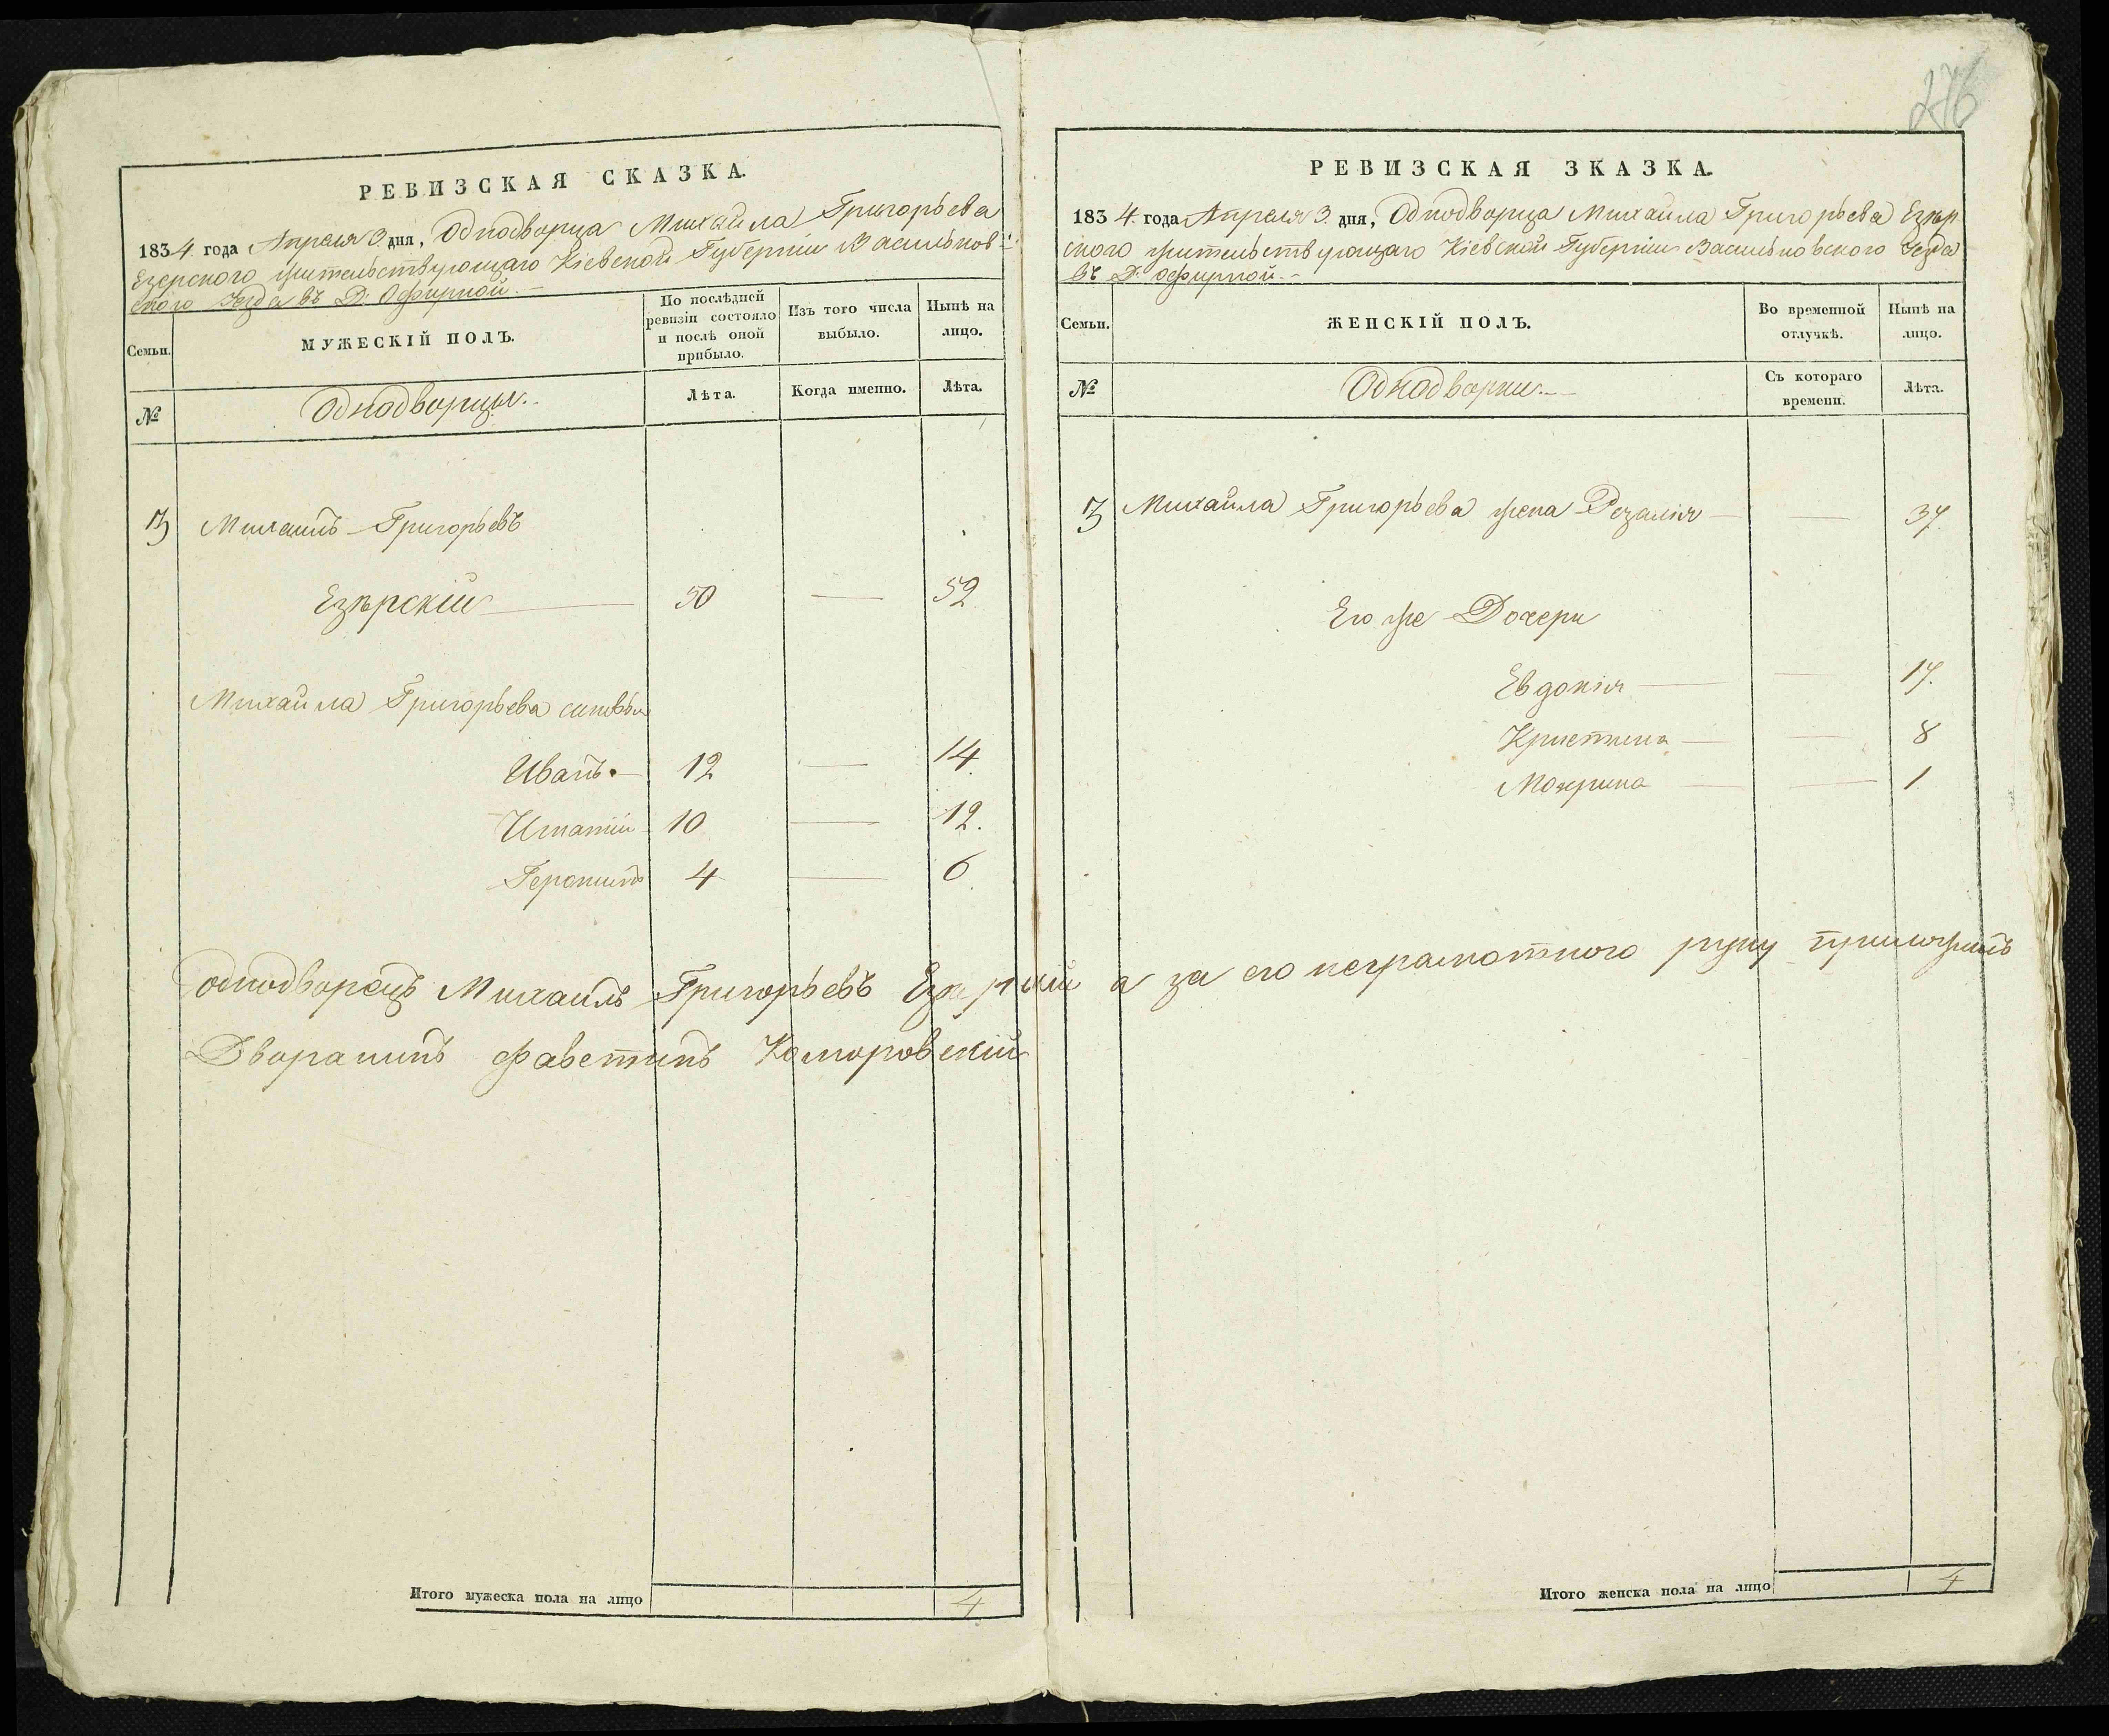 276
РЕВИЗСКАЯ СКАЗКА.
1834 года Апреля 3 дня, Однодворца Михайла Григорьева
Езерского жительствующаго Кіевской Губерніи Васильков-
ского Уезда въ Д: Офирной.
Семьи.
МУЖЕСКІЙ ПОЛЪ.
По послѣдней ревизіи состояло и послѣ оной прибыло.
Изъ того числа выбыло.
Нынѣ на лицо.
№
Однодворцы.
Лѣта.
Когда именно.
Лѣта.
3 Михаилъ Григорьевъ
Езѣрскій 50 — 52
Михайла Григорьева сыновья
Иванъ 12 — 14
Игнатій 10 — 12.
Геронимъ 4 — 6
Однодворецъ Михаилъ Григорьевъ Езерскій а за его неграмотного руку приложилъ
Дворанинъ Фавстинъ Коморовскій
Итого мужеска пола на лицо 4
РЕВИЗСКАЯ ЗКАЗКА.
1834 года Апреля 3 дня, Однодворца Михаила Григорьева Езѣр
ского жительствующаго Кіевской Губерніи Васильковского Уезда
въ Д: Офирной.
Семьи.
ЖЕНСКІЙ ПОЛЪ.
Во временной отлучкѣ.
Нынѣ на лицо.
№
Однодворки.
Съ котораго времени.
Лѣта.
3 Михайла Григорьева жена Розалія — 37
Его же Дочери
Евдокія — 17.
Кристина — 8
Мокрина — 1
Итого женска пола на лицо 4